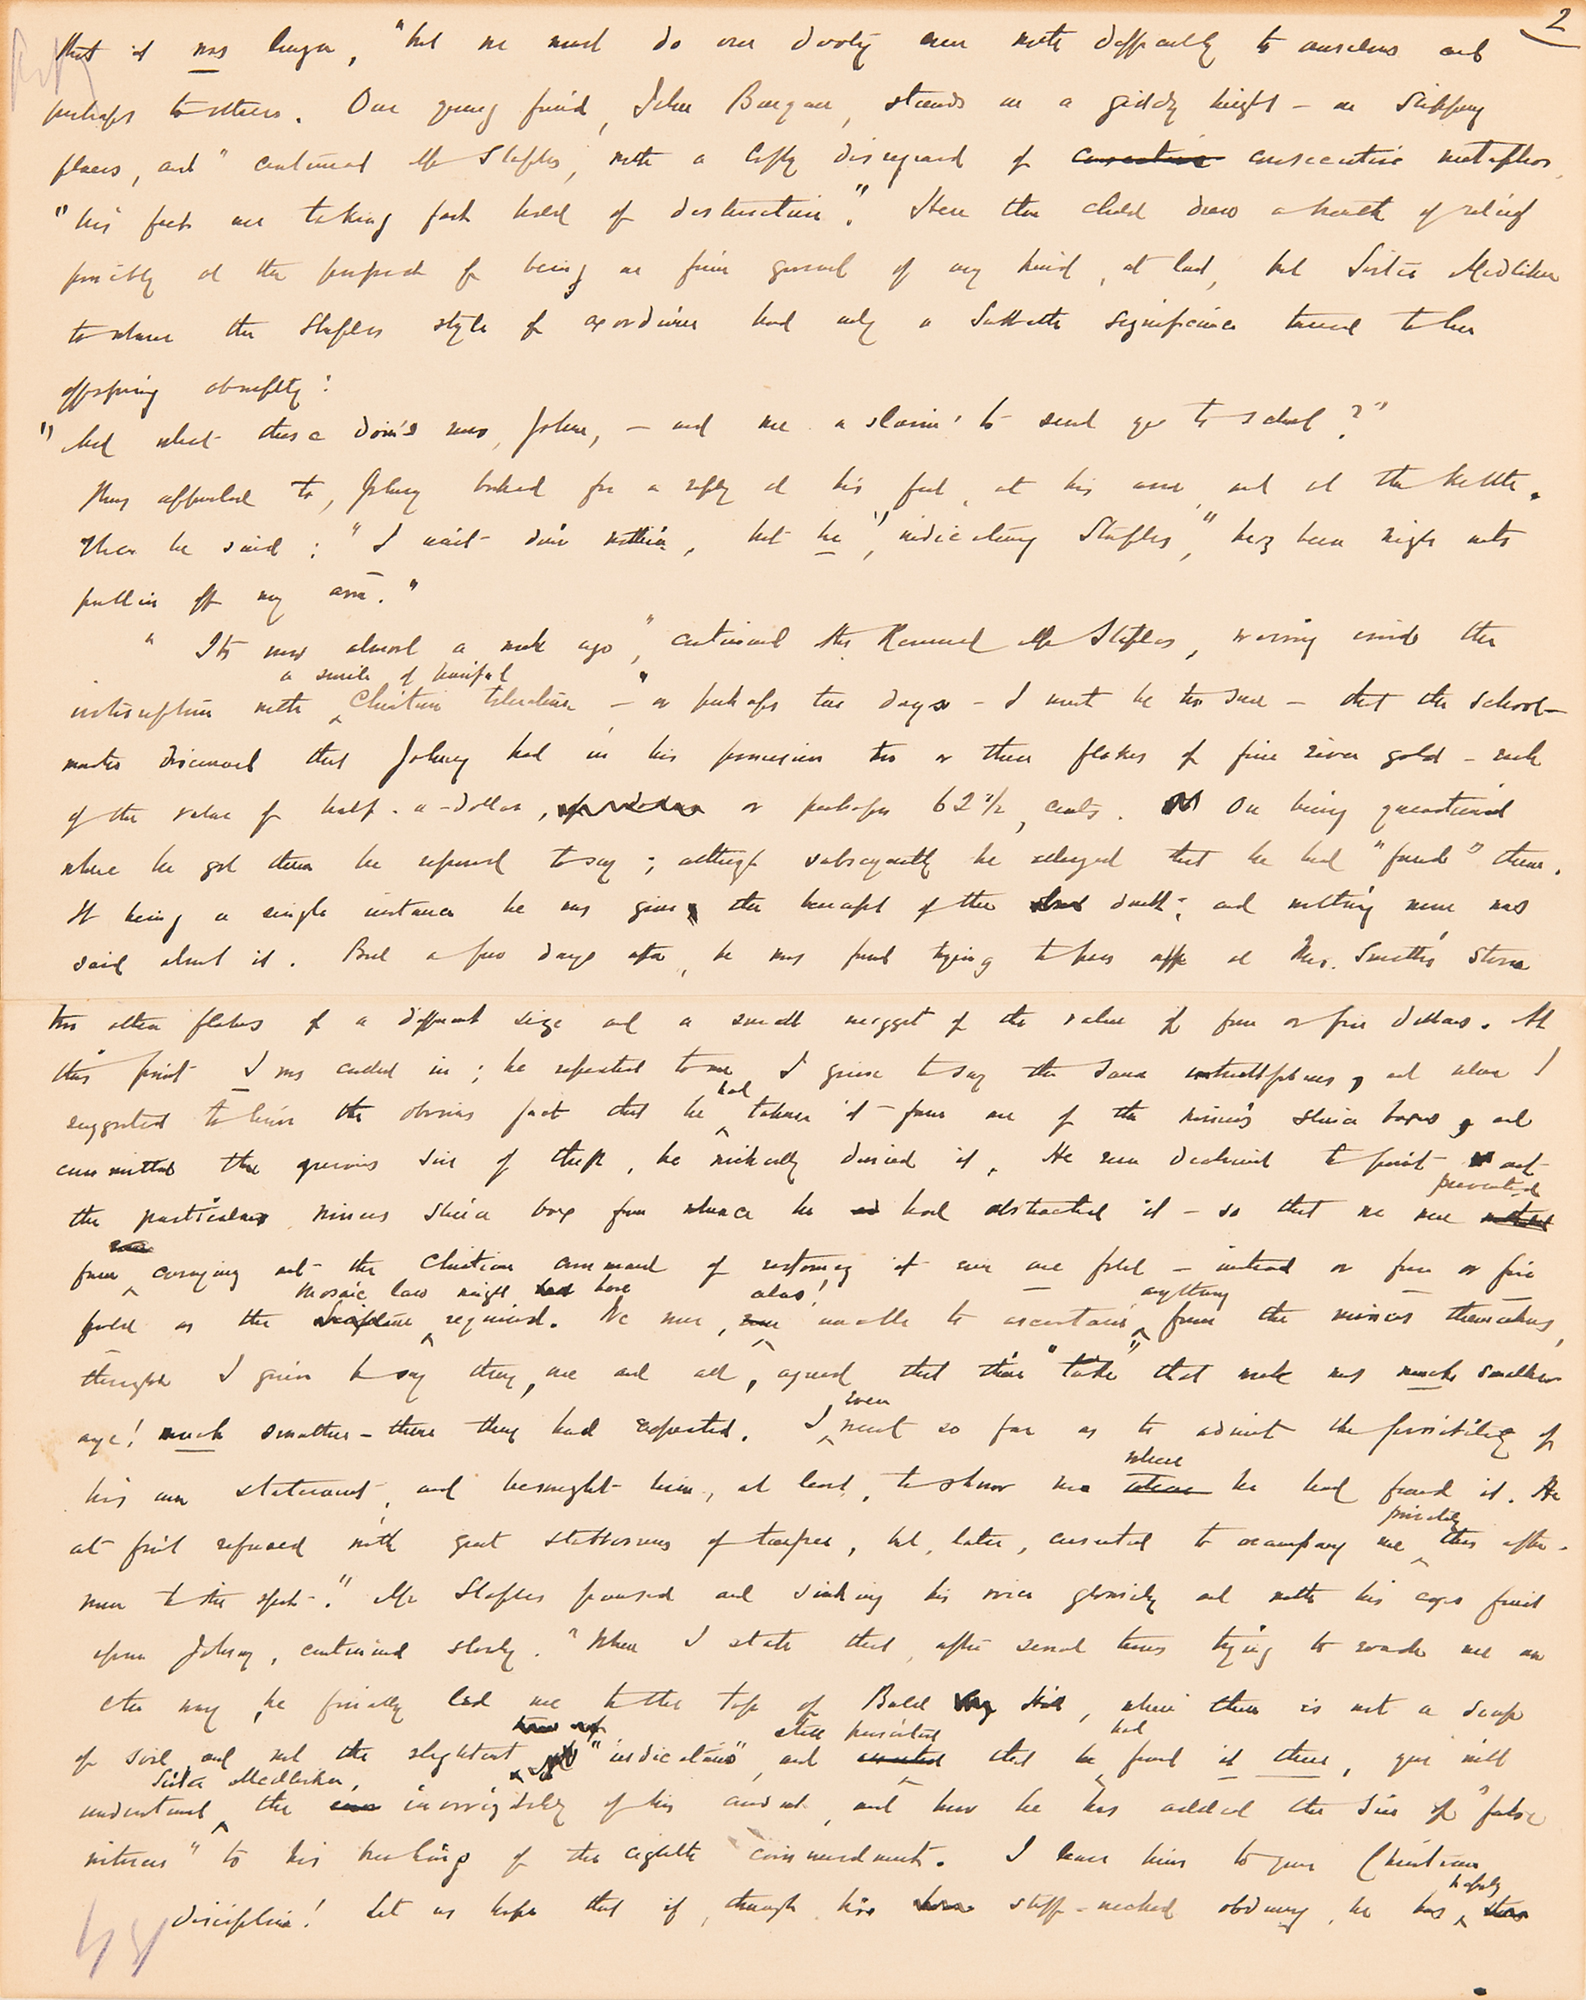 2
that it was larger, "but we must do our dooty even with difficulty to ourselves and
perhaps to others. Our young friend, John Bunyan, stands on a giddy height – on slippery
places, and" continued Mr Staples, with a lofty disregard of consecutive metaphor,
"his feet are taking fast hold of destruction." Here the child drew a breath of relief
possibly at the prospect of being on firm ground of any kind, at last, but Sister Medliker
to whom the Staples style of exordium had only a Sabbath significance turned to her
offspring abruptly:
"And what's these doin's now, John, – and me a slavin' to send ye to school?"
Thus appealed to, Johnny looked for a reply at his feet, at his arm, and at the kettle.
Then he said: "I ain't doin nothin, but he", indicating Staples, "hez been nigh onto
pullin off my arm."
"It's now almost a week ago", continued the Reverend Mr Staples, waving aside the
a smile of painful
interruption with Christian toleration – "or perhaps ten days – I must be too sure – that the school-
master discovered that Johnny had in his possession two or three flakes of fine river gold – each
of the value of half-a-dollar, or perhaps 62 1/2 cents. On being questioned
where he got them he refused to say; although subsequently he alleged that he had "found" them.
It being a single instance he was given the benefit of the doubt; and nothing more was
said about it. But a few days after, he was found trying to pass off at Mr. Smith's store
two other flakes of a different size and a small nugget of the value of four or five dollars. At
this point I was called in; he repeated to me, I grieve to say the same untruthfulness, and when I
had
suggested to him the obvious fact that he taken it from one of the miner's sluice boxes, and
committed the grievous sin of theft, he wickedly denied it. He even declined to point out
prevented
the particular miners sluice box from whence he had abstracted it – so that we were
from carrying out the Christian command of restoring it even one fold – instead or four or five
Mosaic law might have alas! anything
fold as the required. We were, unable to ascertain from the miners themselves,
though I grieve to say they, one and all, agreed that their "take" that week was much smaller
even
aye! much smaller – than they had expected. I went so far as to admit the possibility of
where
his own statement, and besought him, at least, to show me he had found it. He
privately
at first refused with great stubbornness of temper, but, later, consented to accompany me this after-
noon to the spot." Mr Staples paused and sinking his voice gloomily and with his eyes fixed
upon Johnny, continued slowly. "When I state that, after several times trying to evade me on
the way, he finally led me to the top of Bald Hill, where there is not a scrap
still persisted had
of soil and not the slightest "indication", and that he found it there, you will
Sister Medliker,
understand the incorrigibility of his conduct, and how he has added the sin of "false
witness" to his breaking of the eighth commandment. I leave him to your Christian
haply
discipline! Let us hope that if, through his stiff-necked obduracy, he has